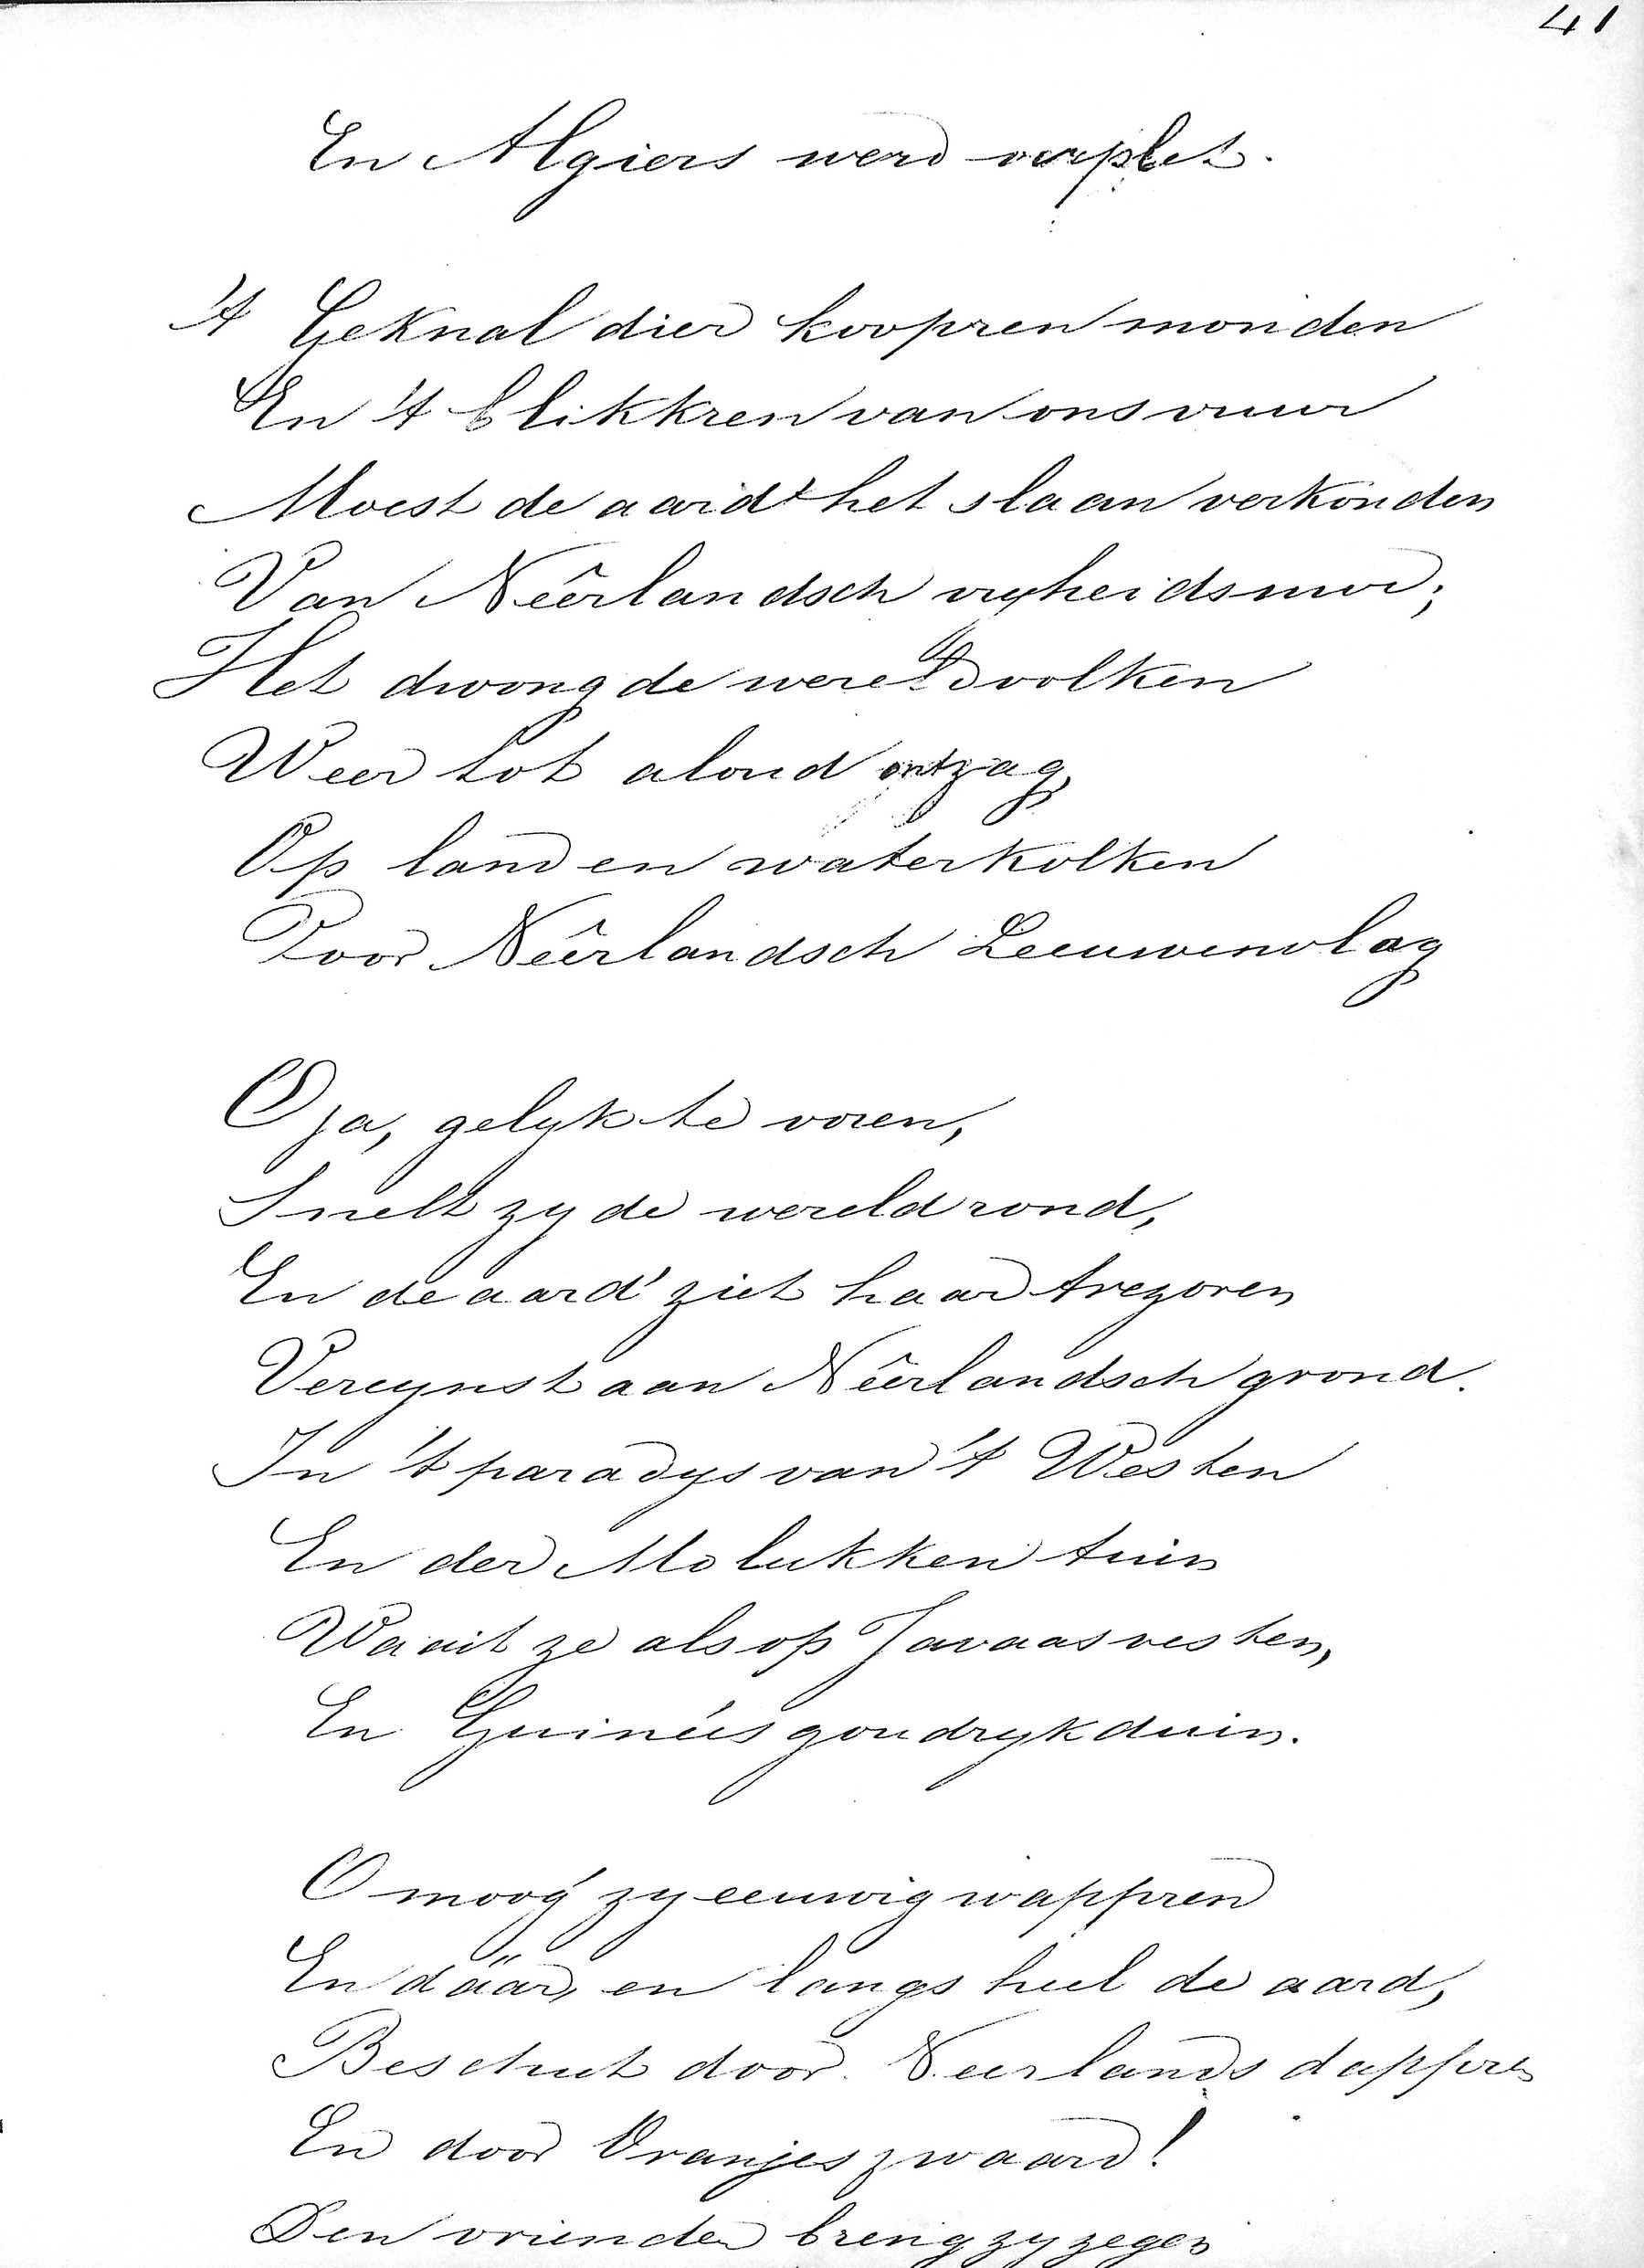 41
En Algiers werd verplet.
't Geknal dier koopren monden
En 't blikkren van ons vuur
Moest de aard' het slaan verkonden
Van Neêrlandsch vryheidsuur;
Het dwong de wereldvolken
Weer tot aloud ontzag,
Op land en waterkolken
Voor Neêrlandsch Leeuwenvlag
O ja, gelyk te voren,
Snelt zy de wereld rond,
En de aard' ziet haar trezoren
Vercynst aan Neêrlandsch grond.
In 't paradys van 't Westen
En der Molukken tuin
Waait ze als op Javaas vesten,
En Guinéés goudryk duin.
O moog' zy eeuwig wappren
En däär, en langs heel de aard,
Beschut door Neerlands dappren
En door Oranjes zwaard!
Den vrienden breng zy zegen